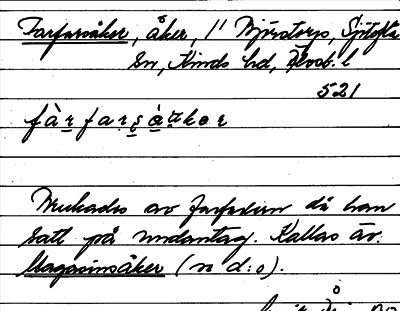 Farfarsåker, åker, 1' Björstorp, Sjötofta
Sn, Kinds hd, Älvsb. l
521
fàrfarsåkər
Brukades av farfadern då han
satt på undantag. Kallas äv.
Magasinsåker (n d:o).